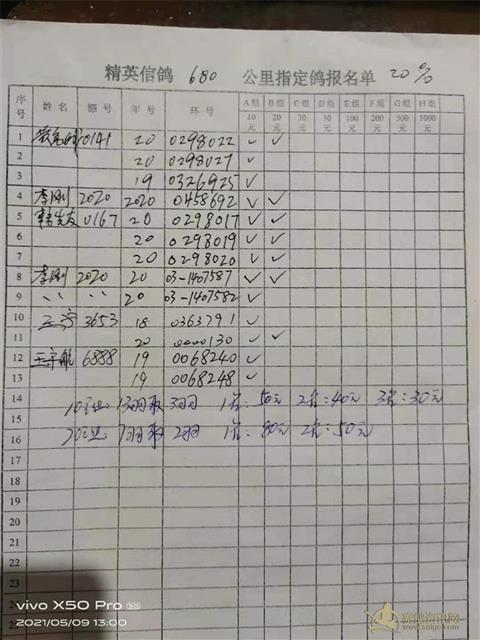 精英信鸽 680 公里指定鸽报名单 20%
序号 姓名 棚号 年号 环号 A组 B组 C组 D组 E组 F组 G组 H组
10元 20元 30元 50元 100元 200元 500元 1000元
1 0141 20 0298022 ✓ ✓
2 20 0298027 ✓
3 19 0326925 ✓
4 李刚 2020 2020 0458692 ✓ ✓
5 韩先友 0167 20 0298017 ✓ ✓
6 20 0298019 ✓ ✓
7 20 0298020 ✓ ✓
8 李刚 2020 20 03-1407587 ✓ ✓
9 〃 〃 20 03-1407582 ✓
10 王 3653 18 0363791 ✓
11 20 0000130 ✓ ✓
12 王宇航 6888 19 0068240 ✓
13 19 0068248 ✓
14 10元 13羽 取3羽 1名:50元 2名:40元 3名:30元
15
16 20元 7羽 取2羽 1名:80元 2名:50元
17
18
19
20
21
22
23
vivo X50 Pro
2021/05/09 13:00